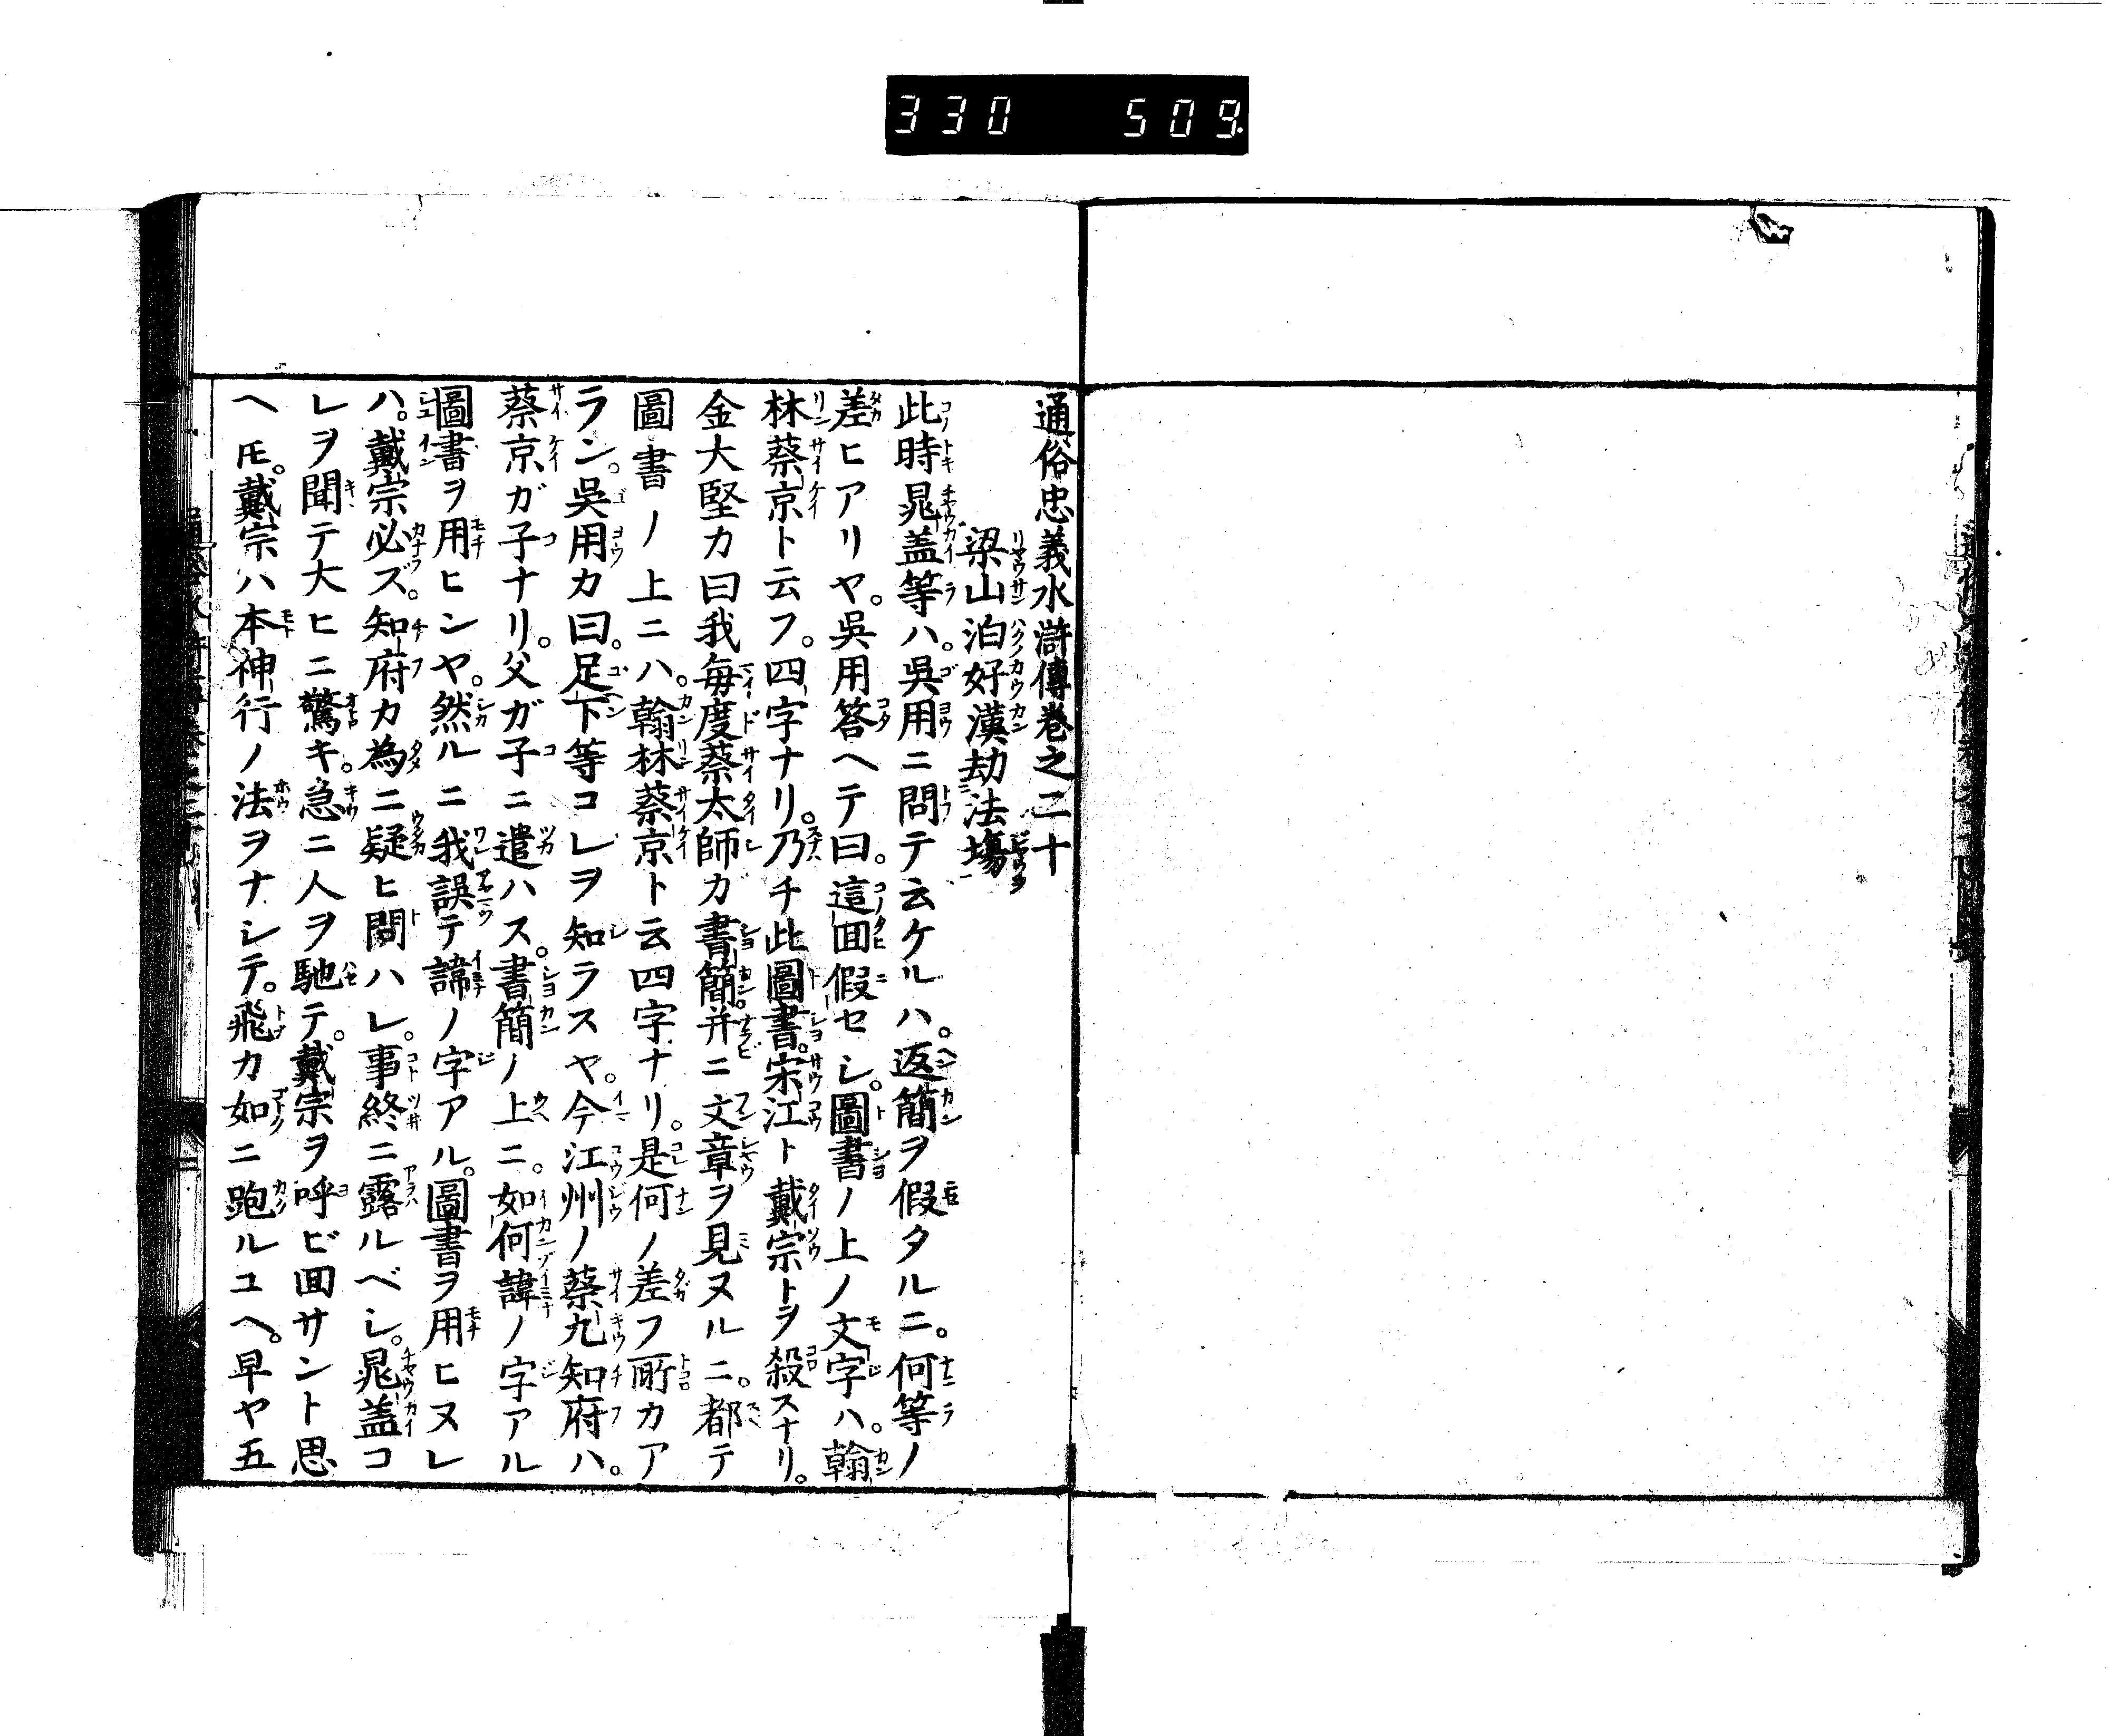 330 509
通俗忠義水滸傳巻之二十
梁山泊好漢劫法場
此時晁盖等ハ。吳用ニ問テ云ケルハ。返簡ヲ假タルニ。何等ノ
差ヒアリヤ。吳用答ヘテ曰。這回假セシ。圖書ノ上ノ文字ハ。翰
林蔡京ト云フ。四字ナリ。乃チ此圖書。宋江ト戴宗トヲ殺スナリ。
金大堅カ曰我毎度蔡太師カ書簡。并ニ文章ヲ見ヌルニ。都テ
圖書ノ上ニハ。翰林蔡京ト云四字ナリ。是何ノ差フ所カア
ラン。吳用カ曰。足下等コレヲ知ラスヤ。今江州ノ蔡九知府ハ。
蔡京ガ子ナリ。父ガ子ニ遣ハス。書簡ノ上ニ。如何諱ノ字アル
圖書ヲ用ヒンヤ。然ルニ我誤テ諱ノ字アル。圖書ヲ用ヒヌレ
ハ。戴宗必ズ。知府カ為ニ疑ヒ問ハレ。事終ニ露ルベシ。晁盖コ
レヲ聞テ大ヒニ驚キ。急ニ人ヲ馳テ。戴宗ヲ呼ビ回サント思
ヘ𪜈。戴宗ハ本神行ノ法ヲナシテ。飛カ如ニ跑ルユヘ。早ヤ五